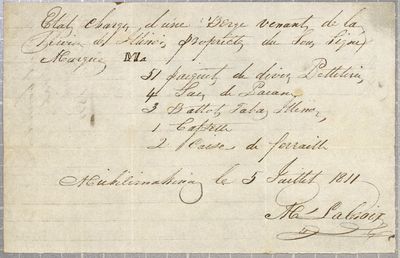 Etat, Charge, d'une Berge venant, de la
Rivière des Illinois, Propriété, du Sous, Signé
Marqué,
51 paquets de divers Pelleteries
4 Sacs de Pacane
3 Ballots, Tabac, Illinois,
1 Cassette
2 Caisse de ferraille
Michilimakinac, le 5 Juillet 1811
M Lacroix